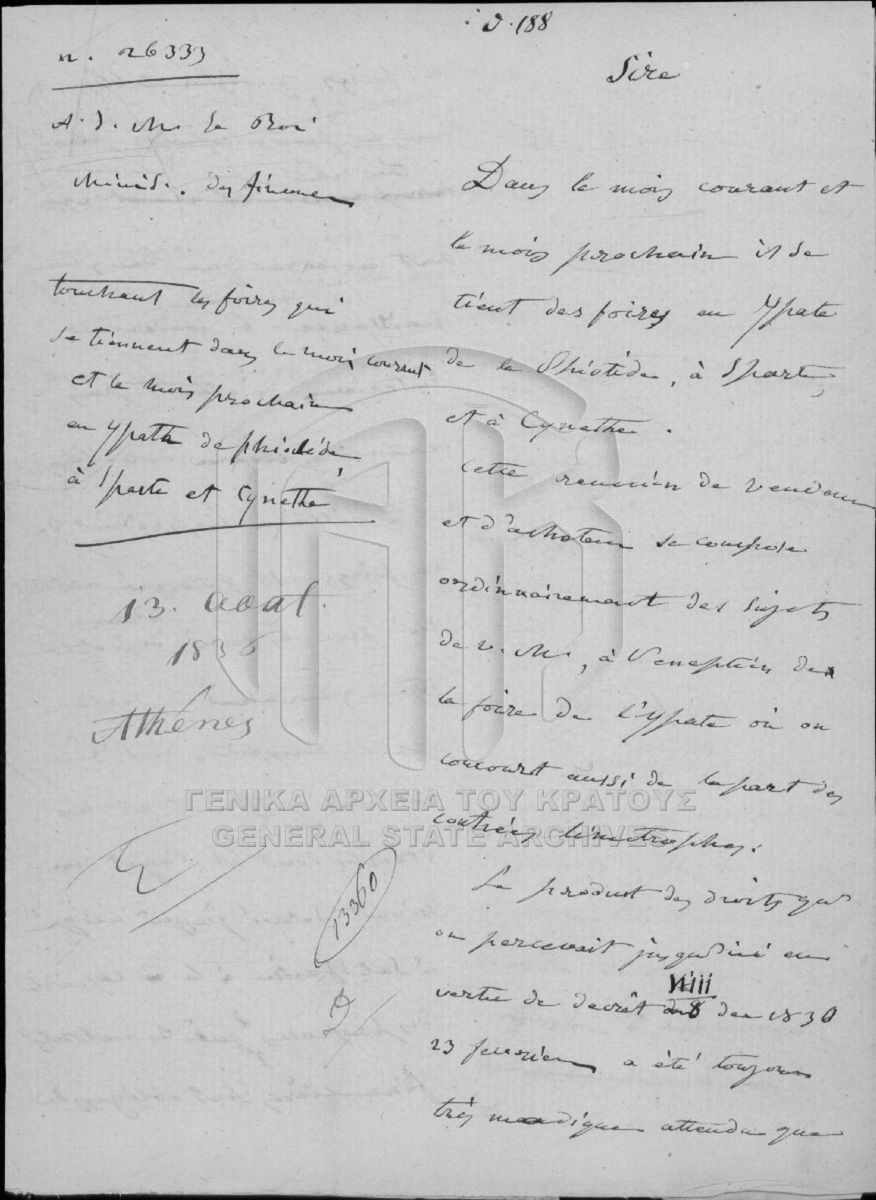 δ. 188
n. 26333
A. S. M. le Roi
Minist. des finances
touchant les foires qui
se tiennent dans le mois courant
et le mois prochain
en Ypate de phiotide
à Sparte et Cynethe
13. Aoat.
1836
Athénes
13360
Sire
Dans le mois courant et
le mois prochain il se
tient des foires en Ypate
de la Phiotide, à Sparte,
et à Cynethe.
Cette reunion de vendeurs
et d'acheteurs se compose
ordinnairement des sujets
de V. M., à l'exeption de
la foire de l'Ypate où on
concourt aussi de la part des
contrées limitrophes.
Le produit des droits que
on percevait jusqu'ici en
vertu de decrêt VIII du 1830
23 fevrier a été toujours
très modique attendu que
ΓΕΝΙΚΑ ΑΡΧΕΙΑ ΤΟΥ ΚΡΑΤΟΥΣ
GENERAL STATE ARCHIVES